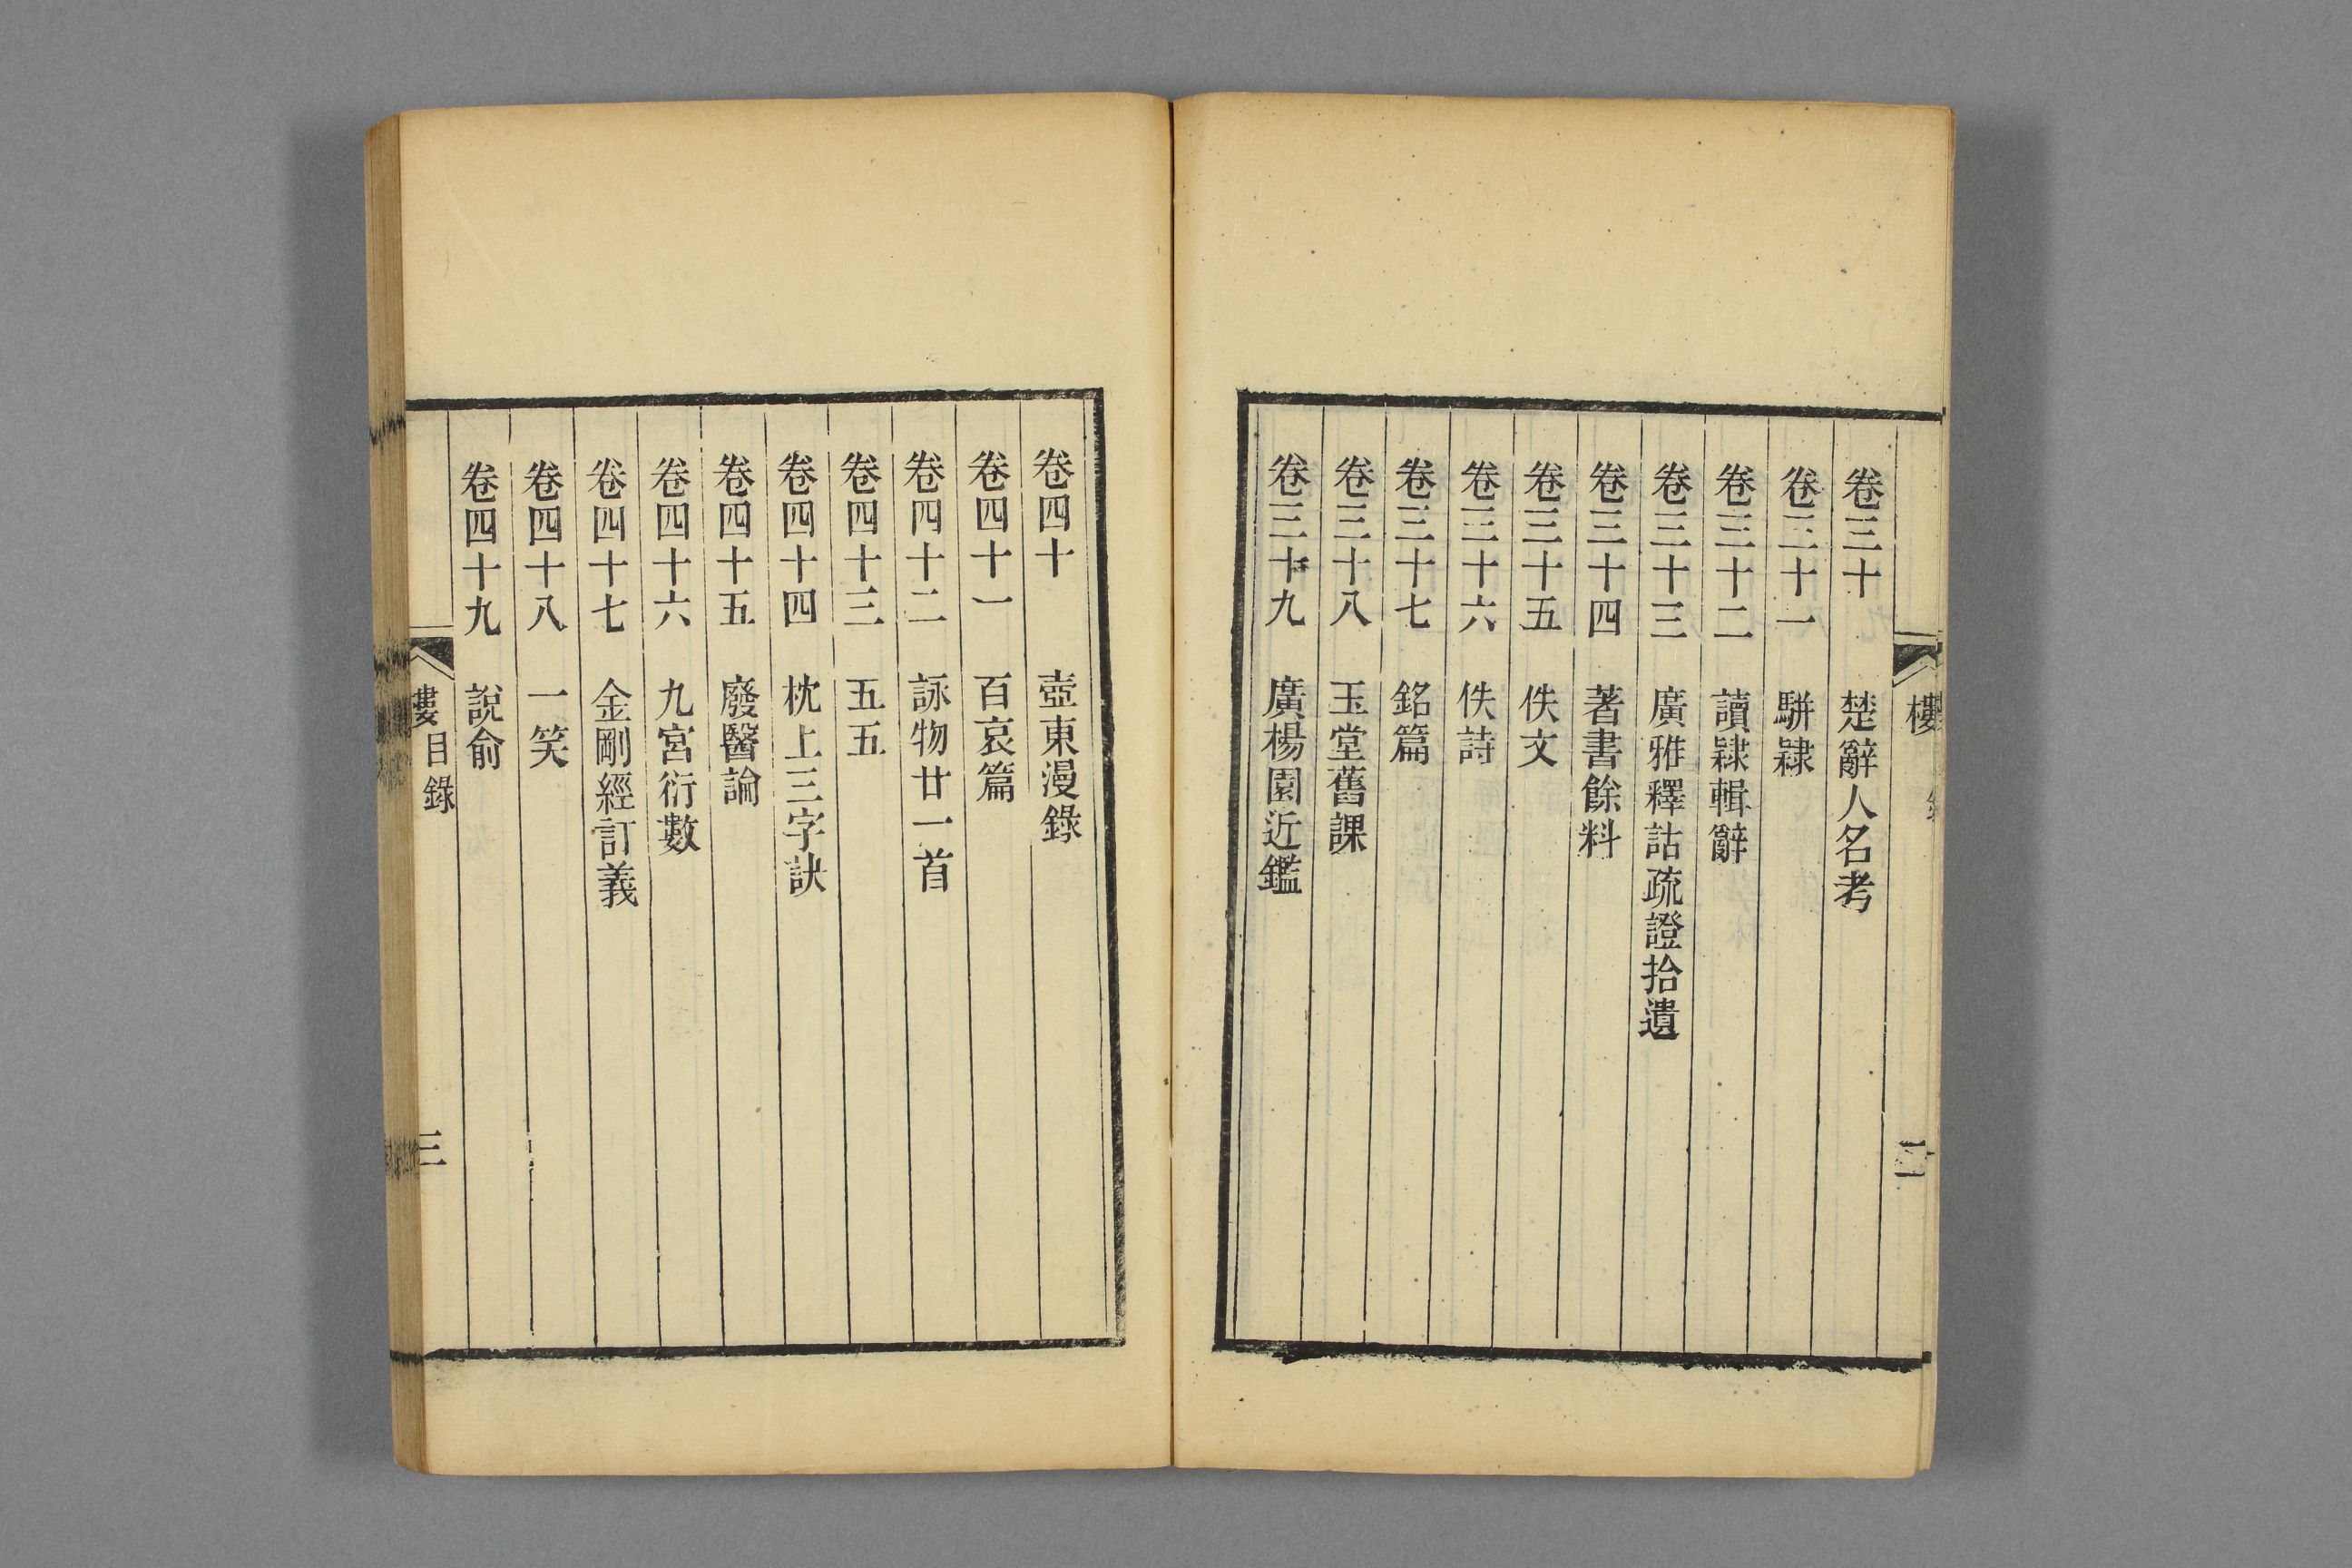 卷三十 楚辭人名考
卷三十一 駢隸
卷三十二 讀隸輯辭
卷三十三 廣雅釋詁疏證拾遺
卷三十四 著書餘料
卷三十五 佚文
卷三十六 佚詩
卷三十七 銘篇
卷三十八 玉堂舊課
卷三十九 廣楊園近鑑
卷四十 壺東漫錄
卷四十一 百哀篇
卷四十二 詠物廿一首
卷四十三 五五
卷四十四 枕上三字訣
卷四十五 廢醫論
卷四十六 九宮衍數
卷四十七 金剛經訂義
卷四十八 一笑
卷四十九 說俞
目錄 三